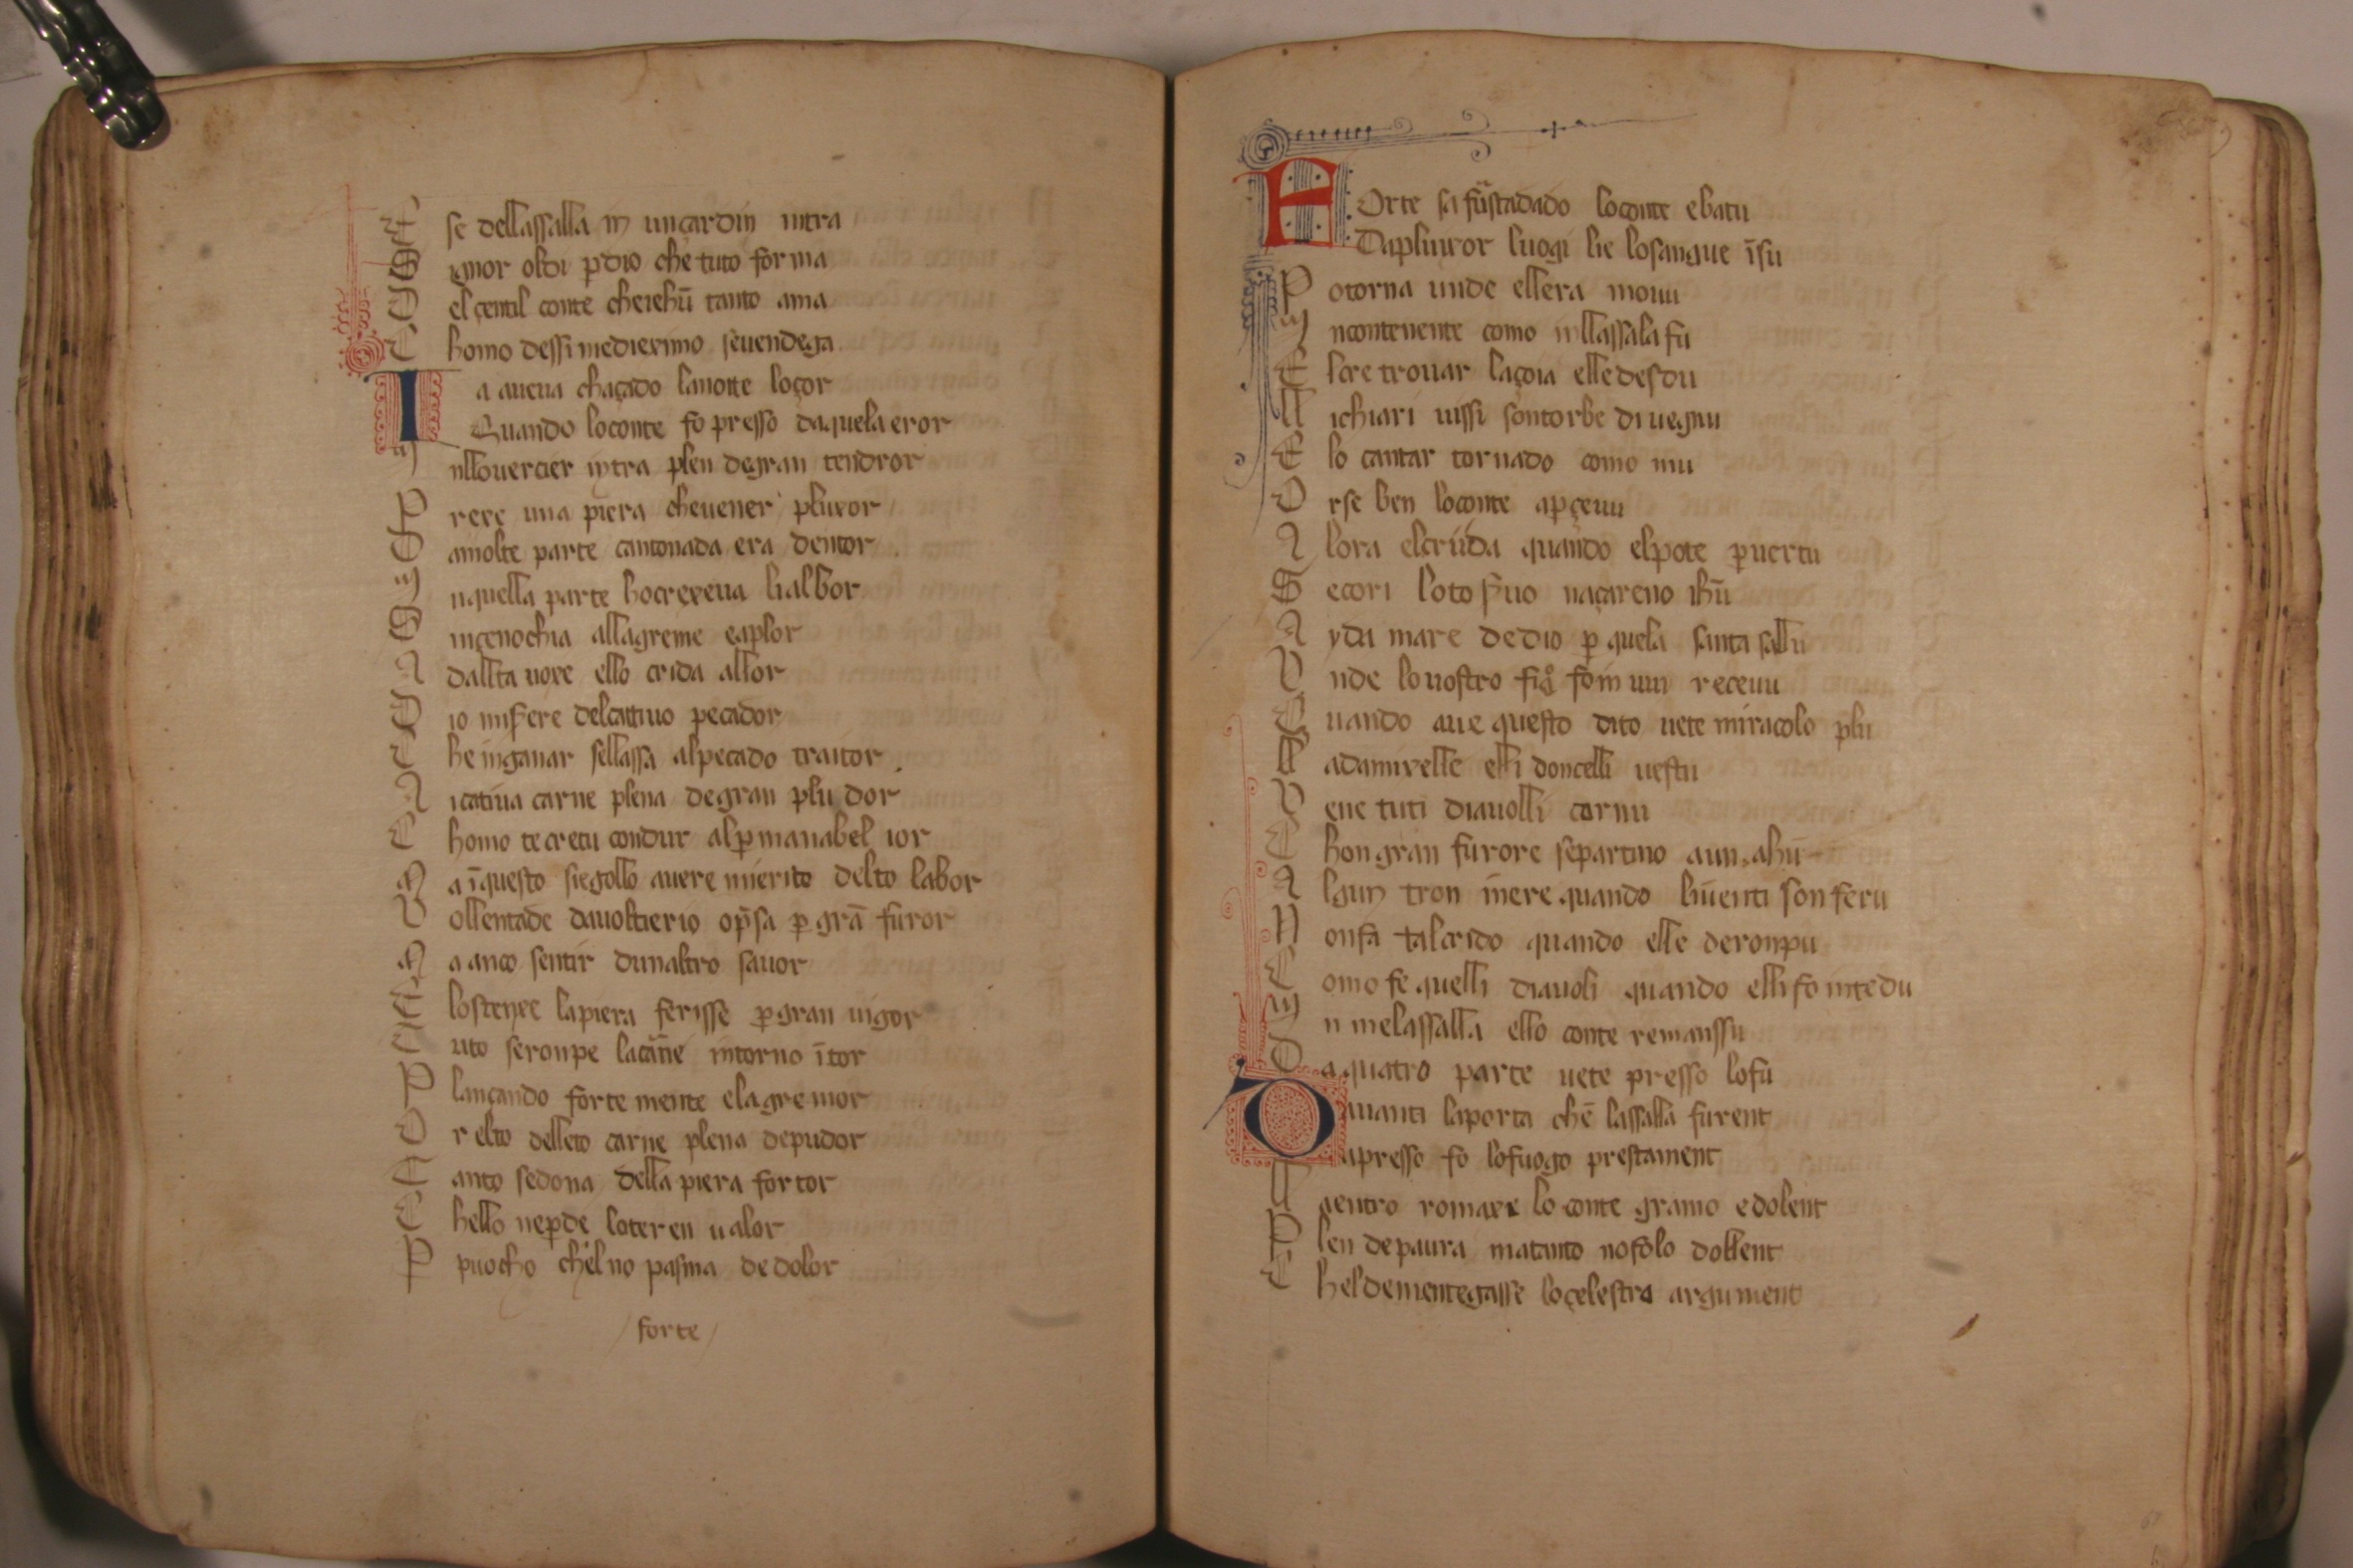 E se dellassalla in un çardin intra
S ignor oldi p̱dio che tuto forma
D el çentil conte cheiehū tanto ama
C homo dessi medieximo sevendega
I a aueua chaçado lanoite loçor
Quando loconte fo presso daquela eror
I nllovercier intra plen degran tendror
P rexe una piera chevener pluxor
D amolte parte cantonada era dentor
I nquella parte hocrexeua lialbor
S inçenochia allagreme eaplor
A dallta uoxe ello crida allor
D io misere delcattiuo pecador
C he inganar sellassa alpecado traitor
A icatiua carne plena degran pludor
C homo te cretu condur alp̱manabel ior
M a īquesto siegollo auere mierito delto labor
V ollentade dauoltierio op̄sa p̱ grā furor
M a anco sentir dunaltro sauor
E llostenxe lapiera ferisse p̱gran uigor
T uto seronpe lacarne intorno ītor
P lançando forte mente elagremor
O r elto delleto carne plena depudor
T anto sedona della piera fortor
C hello nep̱de loteren ualor
P puocho chelno pasma dedolor
forte
F Orte sa fustadado loconte ebatu
Dapluxor luogi lie losangue īsu
P o torna unde ellera mouu
I ncontenente como inllassala fu
E lcre trouar laçoia elledesdu
LL ichiari uissi sontorbe diuegnu
E lo cantar tornado como mu
O rse ben loconte ap̱çeuu
A lora elcrida quando elpote p̱uertu
S ecori loto s̱uo naçareno ihū
A yda mare dedio p̱ quela santa sallu
V nde louostro fiọ fo in uui receuu
Q uando aue questo dito uete miracolo plu
LL adamixelle elli doncelli uestu
V ene tuti diauolli cornu
C hon gran furore separtino
A lgun tron quando liuenti son feru
N onfa talcrido quando elle deronpu
C omo fe quelli diauoli quando elli fo intedu
I n melassalla ello conte remanssu
D a quatro parte uete presso lofu
D auanti laporta chē lassalla furent
apresso fo lofuogo prestament
LL aentro romaxe lo conte gramo edolent
P len depaura matanto nofolo dollent
C heldementegasse loçelestro argument